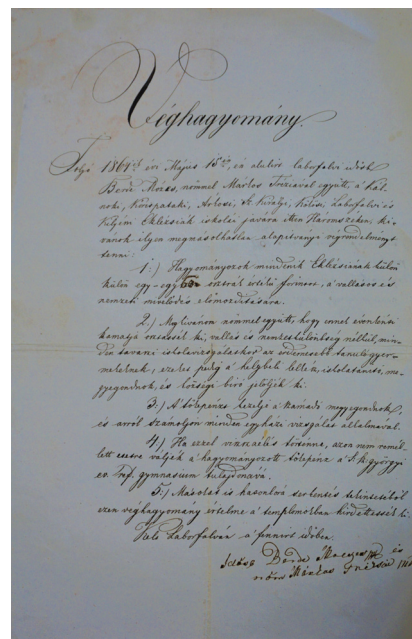 Véghagyomány.
Folyó 1861ik év Május 15én, én alulirt laborfalvi idősb
Benő Mózes, nőmmel Márkos Trézsiával együtt, a
Kőröspataki, Árkosi, Sz. Királyi, Kilyéni, Laborfalvi és
Ekklézsiák iskolái javára itten Háromszéken, ki-
vánok ilyen megmásolhatlan alapitványi végrendelményt
tenni:
1.) Hagyományozok mindenik Ekklézsiának külön
külön egy-egy osztrák értékü forintot, a vallásos és
nemzeti mivelődés előmozditására.
2.) Nyilvánom nőmmel együtt, hogy ennek évenkénti
kamatja osztassék ki, vallás és nemzetkülönbség nélkül, min-
den tavaszi iskolavizsgálatkor az érdemesebb tanulógyer-
mekeknek, ezeket pedig a helybeli lelkész, iskolatanitó, me-
gyegondnok, és községi biró jelöljék ki.
3.) A tőkepénzt kezelje a számadó megyegondnok,
és arról számoljon minden egyházi vizsgálat alkalmával.
4.) Ha ezzel visszaélés történne, azon nem remél-
lett esetre váljék a hagyományozott tőkepénz a Sz. Györgyi
ev. ref. gymnasium tulajdonává.
5.) Másolat is hasonló tekintetéből
ezen véghagyomány értelme a templomokban hirdettessék ki.
Kelt Laborfalván a fennirt időben.
Idősb Benő Mózes és
nőm Márkos Trézsia